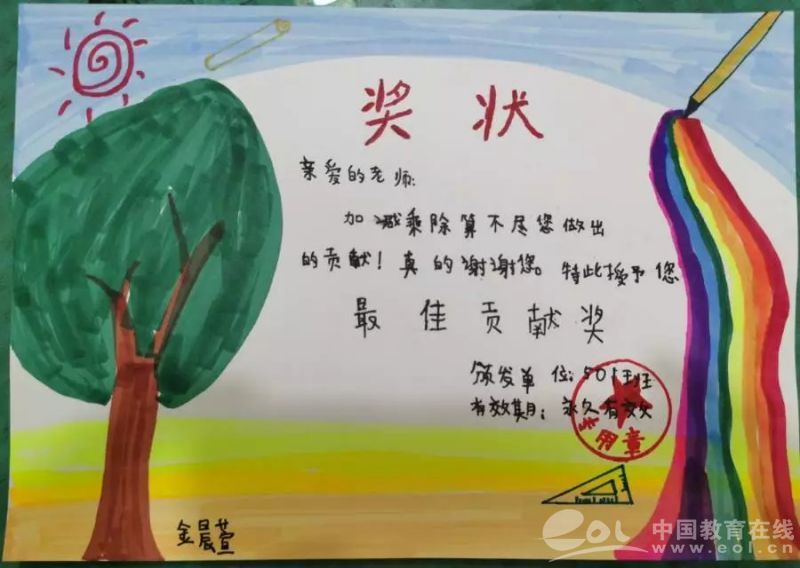 奖状
亲爱的老师:
加减乘除算不尽您做出
的贡献!真的谢谢您。特此授予您
最佳贡献奖
颁发单位:501班
有效期:永久有效
专用章
金晨萱
eol 中国教育在线
www.eol.cn